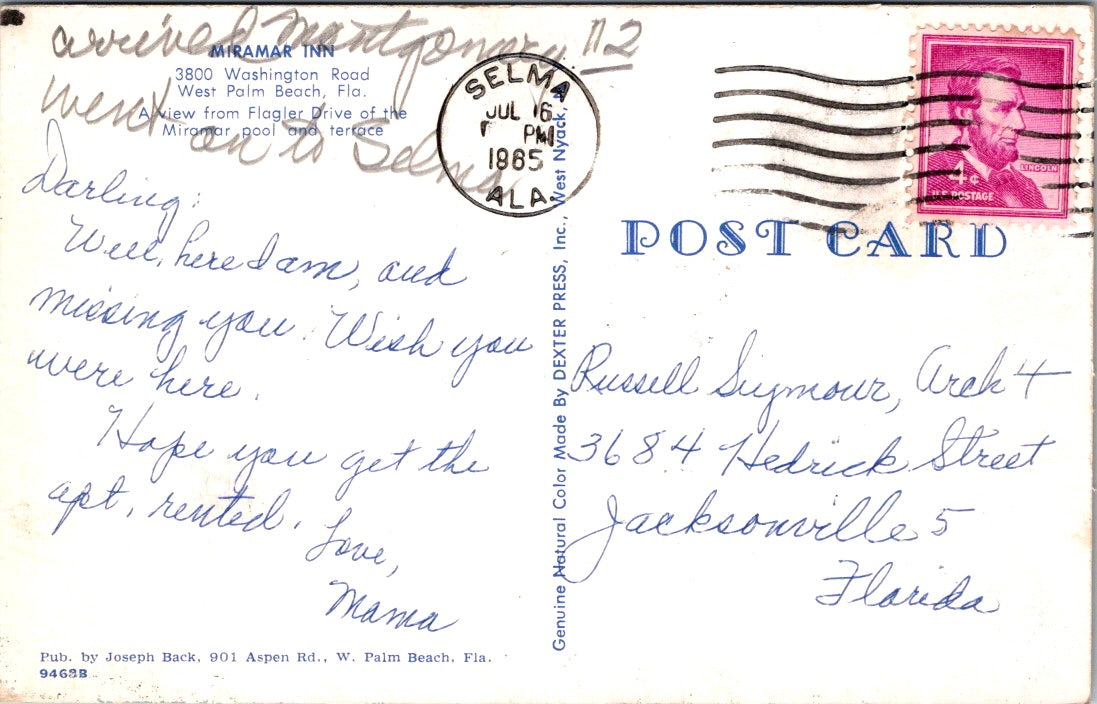 arrived Montgomery #2
went on to Selma
MIRAMAR INN
3800 Washington Road
West Palm Beach, Fla.
A view from Flagler Drive of the
Miramar pool and terrace
Darling:
Well, here I am, and
missing you. Wish you
were here.
Hope you get the
apt. rented.
Love,
Mama
Pub. by Joseph Back, 901 Aspen Rd., W. Palm Beach, Fla.
9468B
Genuine Natural Color Made By DEXTER PRESS, Inc., West Nyack,
SELMA
JUL 16
PM
1965
ALA.
4¢
LINCOLN
U.S. POSTAGE
POST CARD
Russell Seymour,
3684 Hedrick Street
Jacksonville 5
Florida